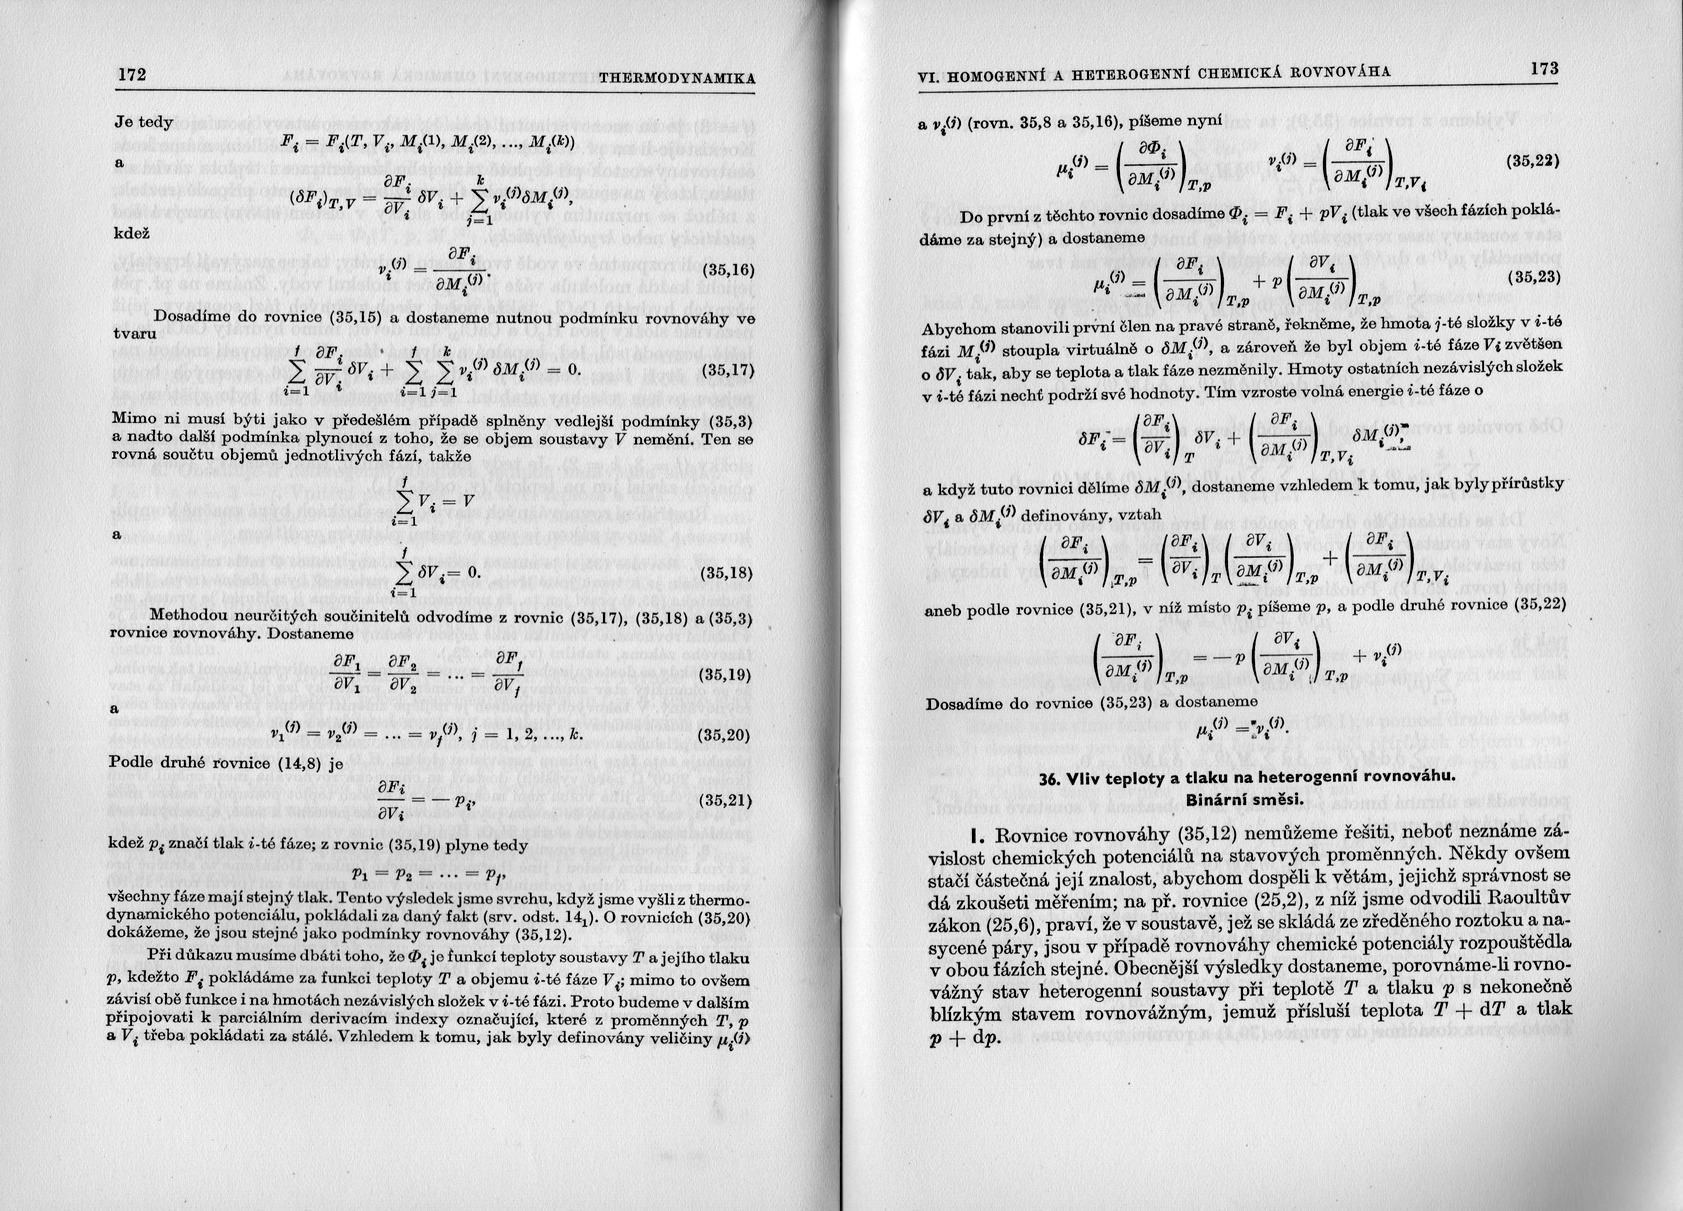 172 THERMODYNAMIKA
Je tedy
F_i = F_i(T, V_i, M_i^(1), M_i^(2), ..., M_i^(k))
a
(δF_i)_T,V = ∂F_i/∂V_i δV_i + ∑_{j=1}^{k} ν_i^(j) δM_i^(j),
kdež
ν_i^(j) = ∂F_i/∂M_i^(j). (35,16)
Dosadíme do rovnice (35,15) a dostaneme nutnou podmínku rovnováhy ve
tvaru
∑_{i=1}^{f} ∂F_i/∂V_i δV_i + ∑_{i=1}^{f} ∑_{j=1}^{k} ν_i^(j) δM_i^(j) = 0. (35,17)
Mimo ni musí býti jako v předešlém případě splněny vedlejší podmínky (35,3)
a nadto další podmínka plynoucí z toho, že se objem soustavy V nemění. Ten se
rovná součtu objemů jednotlivých fází, takže
∑_{i=1}^{f} V_i = V
a
∑_{i=1}^{f} δV_i = 0. (35,18)
Methodou neurčitých součinitelů odvodíme z rovnic (35,17), (35,18) a (35,3)
rovnice rovnováhy. Dostaneme
∂F_1/∂V_1 = ∂F_2/∂V_2 = ... = ∂F_f/∂V_f (35,19)
a
ν_1^(j) = ν_2^(j) = ... = ν_f^(j), j = 1, 2, ..., k. (35,20)
Podle druhé rovnice (14,8) je
∂F_i/∂V_i = — p_i, (35,21)
kdež p_i značí tlak i-té fáze; z rovnic (35,19) plyne tedy
p_1 = p_2 = ... = p_f,
všechny fáze mají stejný tlak. Tento výsledek jsme svrchu, když jsme vyšli z thermo-
dynamického potenciálu, pokládali za daný fakt (srv. odst. 14_1). O rovnicích (35,20)
dokážeme, že jsou stejné jako podmínky rovnováhy (35,12).
Při důkazu musíme dbáti toho, že Φ_i je funkcí teploty soustavy T a jejího tlaku
p, kdežto F_i pokládáme za funkci teploty T a objemu i-té fáze V_i; mimo to ovšem
závisí obě funkce i na hmotách nezávislých složek v i-té fázi. Proto budeme v dalším
připojovati k parciálním derivacím indexy označující, které z proměnných T, p
a V_i třeba pokládati za stálé. Vzhledem k tomu, jak byly definovány veličiny μ_i^(j)
VI. HOMOGENNÍ A HETEROGENNÍ CHEMICKÁ ROVNOVÁHA 173
a ν_i^(j) (rovn. 35,8 a 35,16), píšeme nyní
μ_i^(j) = (∂Φ_i/∂M_i^(j))_T,p ν_i^(j) = (∂F_i/∂M_i^(j))_T,V_i (35,22)
Do první z těchto rovnic dosadíme Φ_i = F_i + pV_i (tlak ve všech fázích poklá-
dáme za stejný) a dostaneme
μ_i^(j) = (∂F_i/∂M_i^(j))_T,p + p (∂V_i/∂M_i^(j))_T,p (35,23)
Abychom stanovili první člen na pravé straně, řekněme, že hmota j-té složky v i-té
fázi M_i^(j) stoupla virtuálně o δM_i^(j), a zároveň že byl objem i-té fáze V_i zvětšen
o δV_i tak, aby se teplota a tlak fáze nezměnily. Hmoty ostatních nezávislých složek
v i-té fázi nechť podrží své hodnoty. Tím vzroste volná energie i-té fáze o
δF_i = (∂F_i/∂V_i)_T δV_i + (∂F_i/∂M_i^(j))_T,V_i δM_i^(j),
a když tuto rovnici dělíme δM_i^(j), dostaneme vzhledem k tomu, jak byly přírůstky
δV_i a δM_i^(j) definovány, vztah
(∂F_i/∂M_i^(j))_T,p = (∂F_i/∂V_i)_T (∂V_i/∂M_i^(j))_T,p + (∂F_i/∂M_i^(j))_T,V_i
aneb podle rovnice (35,21), v níž místo p_i píšeme p, a podle druhé rovnice (35,22)
(∂F_i/∂M_i^(j))_T,p = — p (∂V_i/∂M_i^(j))_T,p + ν_i^(j)
Dosadíme do rovnice (35,23) a dostaneme
μ_i^(j) = ν_i^(j).
36. Vliv teploty a tlaku na heterogenní rovnováhu.
Binární směsi.
I. Rovnice rovnováhy (35,12) nemůžeme řešiti, neboť neznáme zá-
vislost chemických potenciálů na stavových proměnných. Někdy ovšem
stačí částečná její znalost, abychom dospěli k větám, jejichž správnost se
dá zkoušeti měřením; na př. rovnice (25,2), z níž jsme odvodili Raoultův
zákon (25,6), praví, že v soustavě, jež se skládá ze zředěného roztoku a na-
sycené páry, jsou v případě rovnováhy chemické potenciály rozpouštědla
v obou fázích stejné. Obecnější výsledky dostaneme, porovnáme-li rovno-
vážný stav heterogenní soustavy při teplotě T a tlaku p s nekonečně
blízkým stavem rovnovážným, jemuž přísluší teplota T + dT a tlak
p + dp.